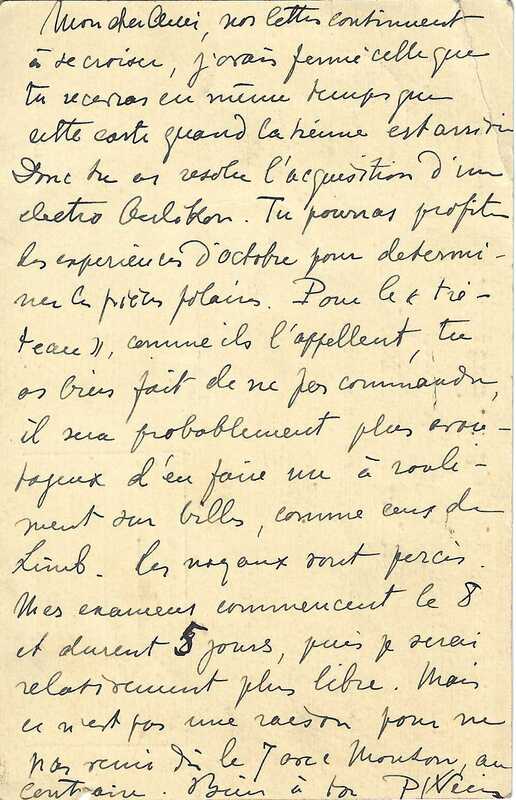 Mon cher Ami, nos lettres continuent
à se croiser, j'avais fermé celle que
tu recevras en même temps que
cette carte quand la tienne est arrivée
Donc tu as resolu l'acquisition d'un
electro Oerlikon. Tu pourras profiter
des experiences d'octobre pour determi-
ner les pièces polaires. Pour le « tré-
teau », comme ils l'appellent, tu
as bien fait de ne pas commander,
il sera probablement plus avan-
tageux d'en faire un à roule-
ment sur billes, comme ceux de
Limb. Les noyaux sont percés.
Mes examens commencent le 8
et durent 5 jours, puis je serai
relativement plus libre. Mais
ce n'est pas une raison pour ne
pas venir le 7 avec Mouton, au
contraire. Bien à toi P Weiss